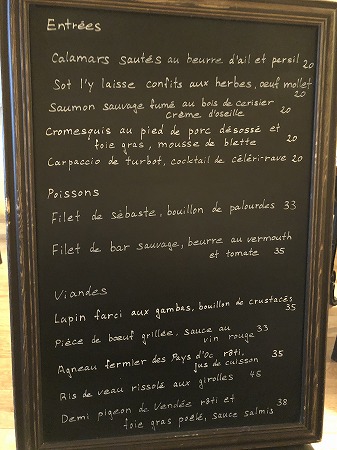 Entrées
Calamars sautés au beurre d'ail et persil 20
Sot l'y laisse confits aux herbes, oeuf mollet
20
Saumon sauvage fumé au bois de cerisier
crème d'oseille 20
Cromesquis au pied de porc désossé et
foie gras, mousse de blette 20
Carpaccio de turbot, cocktail de céléri-rave 20
Poissons
Filet de sébaste, bouillon de palourdes 33
Filet de bar sauvage, beurre au vermouth
et tomate 35
Viandes
Lapin farci aux gambas, bouillon de crustacés
35
Pièce de bœuf grillée, sauce au 33
vin rouge
Agneau fermier des Pays d'Oc rôti, 35
jus de cuisson
Ris de veau rissolé aux girolles 45
Demi pigeon de Vendée rôti et 38
foie gras poêlé, sauce salmis